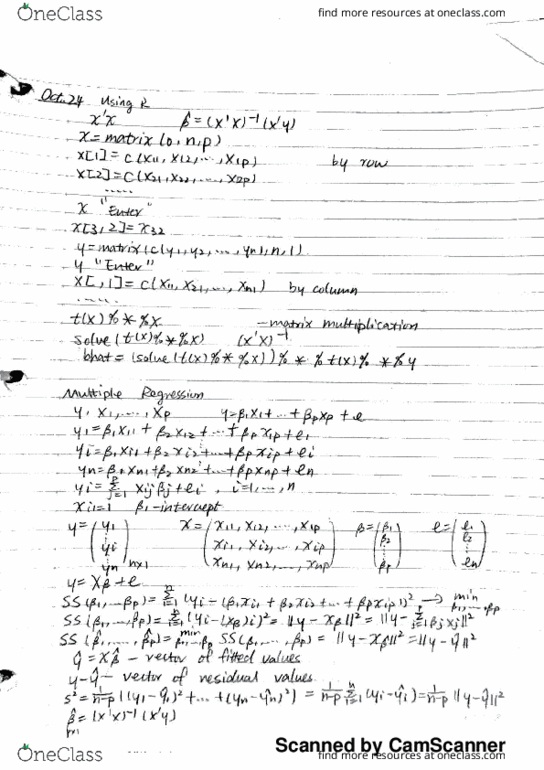 OneClass
find more resources at oneclass.com
Oct. 24 Using R
X'X β̂ = (X'X)⁻¹(X'y)
X = matrix(0, n, p)
X[1] = c(x11, x12, ..., x1p) by row
X[2] = c(x21, x22, ..., x2p)
.....
X "Enter"
X[3,2] = x32
y = matrix(c(y1, y2, ..., yn), n, 1)
y "Enter"
X[,1] = c(x11, x21, ..., xn1) by column
.....
t(X)%*%X – matrix multiplication
solve(t(X)%*%X) (X'X)⁻¹
bhat = (solve(t(X)%*%X))%*%t(X)%*%y
Multiple Regression
y, x1, ..., xp y = β1x1 + ... + βpxp + e
y1 = β1x11 + β2x12 + ... + βpx1p + e1
yi = β1xi1 + β2xi2 + ... + βpxip + ei
yn = β1xn1 + β2xn2 + ... + βpxnp + en
yi = Σ j=1 p xijβj + ei, i=1, ..., n
xi1=1 β1-intercept
y = (y1 ⋮ yi ⋮ yn) n×1 X = (x11, x12, ..., x1p xi1, xi2, ..., xip xn1, xn2, ..., xnp) β = (β1 β2 ⋮ βp) e = (e1 e2 ⋮ en)
y = Xβ + e
SS(β1, ..., βp) = Σ i=1 n (yi – (β1xi1 + β2xi2 + ... + βpxip))² → min β1, ..., βp
SS(β1, ..., βp) = Σ i=1 n (yi – (Xβ)i)² = ||y – Xβ||² = ||y – Σ j=1 p βjxj||²
SS(β̂1, ..., β̂p) = min β1, ..., βp SS(β1, ..., βp) = ||y – Xβ̂||² = ||y – ŷ||²
ŷ = Xβ̂ – vector of fitted values
y – ŷ – vector of residual values
s² = 1/n-p ((y1 – ŷ1)² + ... + (yn – ŷn)²) = 1/n-p Σ i=1 n (yi – ŷi)² = 1/n-p ||y – ŷ||²
β̂ = (X'X)⁻¹(X'y)
Scanned by CamScanner
OneClass
find more resources at oneclass.com